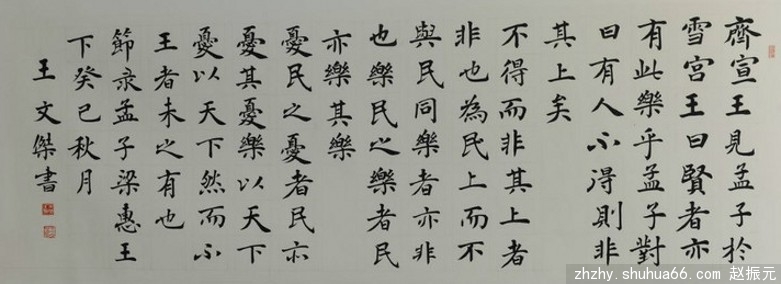 齊宣王見孟子於
雪宮王曰賢者亦
有此樂乎孟子對
曰有人不得則非
其上矣
不得而非其上者
非也為民上而不
與民同樂者亦非
也樂民之樂者民
亦樂其樂
憂民之憂者民亦
憂其憂樂以天下
憂以天下然而不
王者未之有也
節录孟子梁惠王
下癸巳秋月
王文傑書
zhzhy.shuhua66.com 赵振元